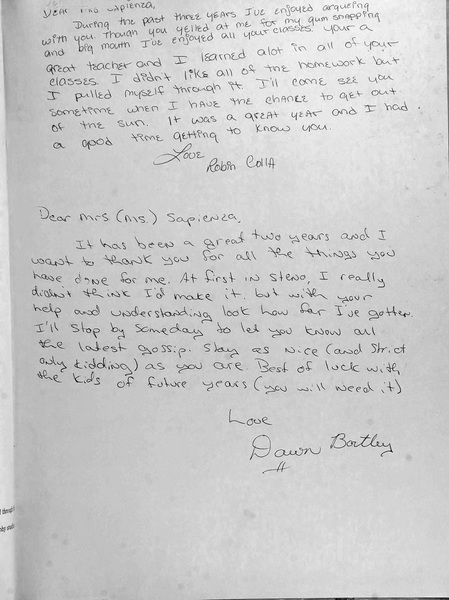 Dear Mrs Sapienza,
During the past three years I've enjoyed arqueing
with you. Though you yelled at me for my gum snapping
and big mouth I've enjoyed all your classes. Your a
great teacher and I learned alot in all of your
classes. I didn't like all of the homework but
I pulled myself through it. I'll come see you
sometime when I have the chance to get out
of the sun. It was a great year and I had
a good time getting to know you.
Love
Robin Colla
Dear Mrs (Ms.) Sapienza,
It has been a great two years and I
want to thank you for all the things you
have done for me. At first in steno, I really
didn't think I'd make it. but with your
help and understanding look how far I've gotten.
I'll stop by someday to let you know all
the latest gossip. Stay as nice (and strict
only kidding) as you are. Best of luck with
the kids of future years (you will need it)
Love
Dawn Bartley